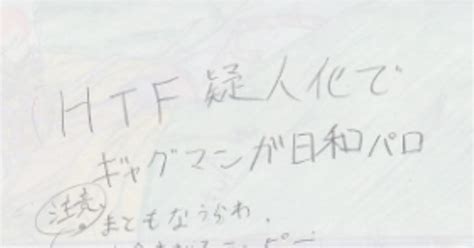 HTF 疑人化で
ギャグマンが日和パロ
注意
まともなうらわ.